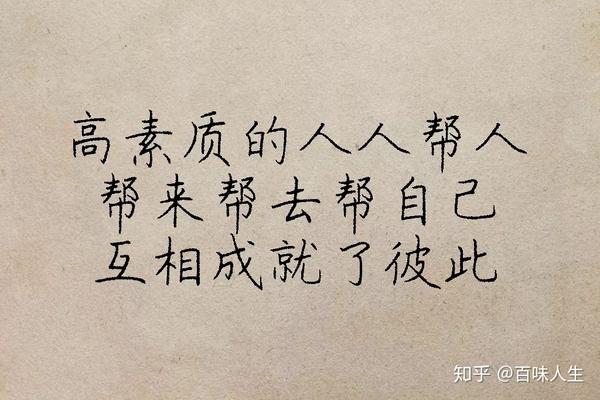 高素质的人人帮人
帮来帮去帮自己
互相成就了彼此
知乎 @百味人生